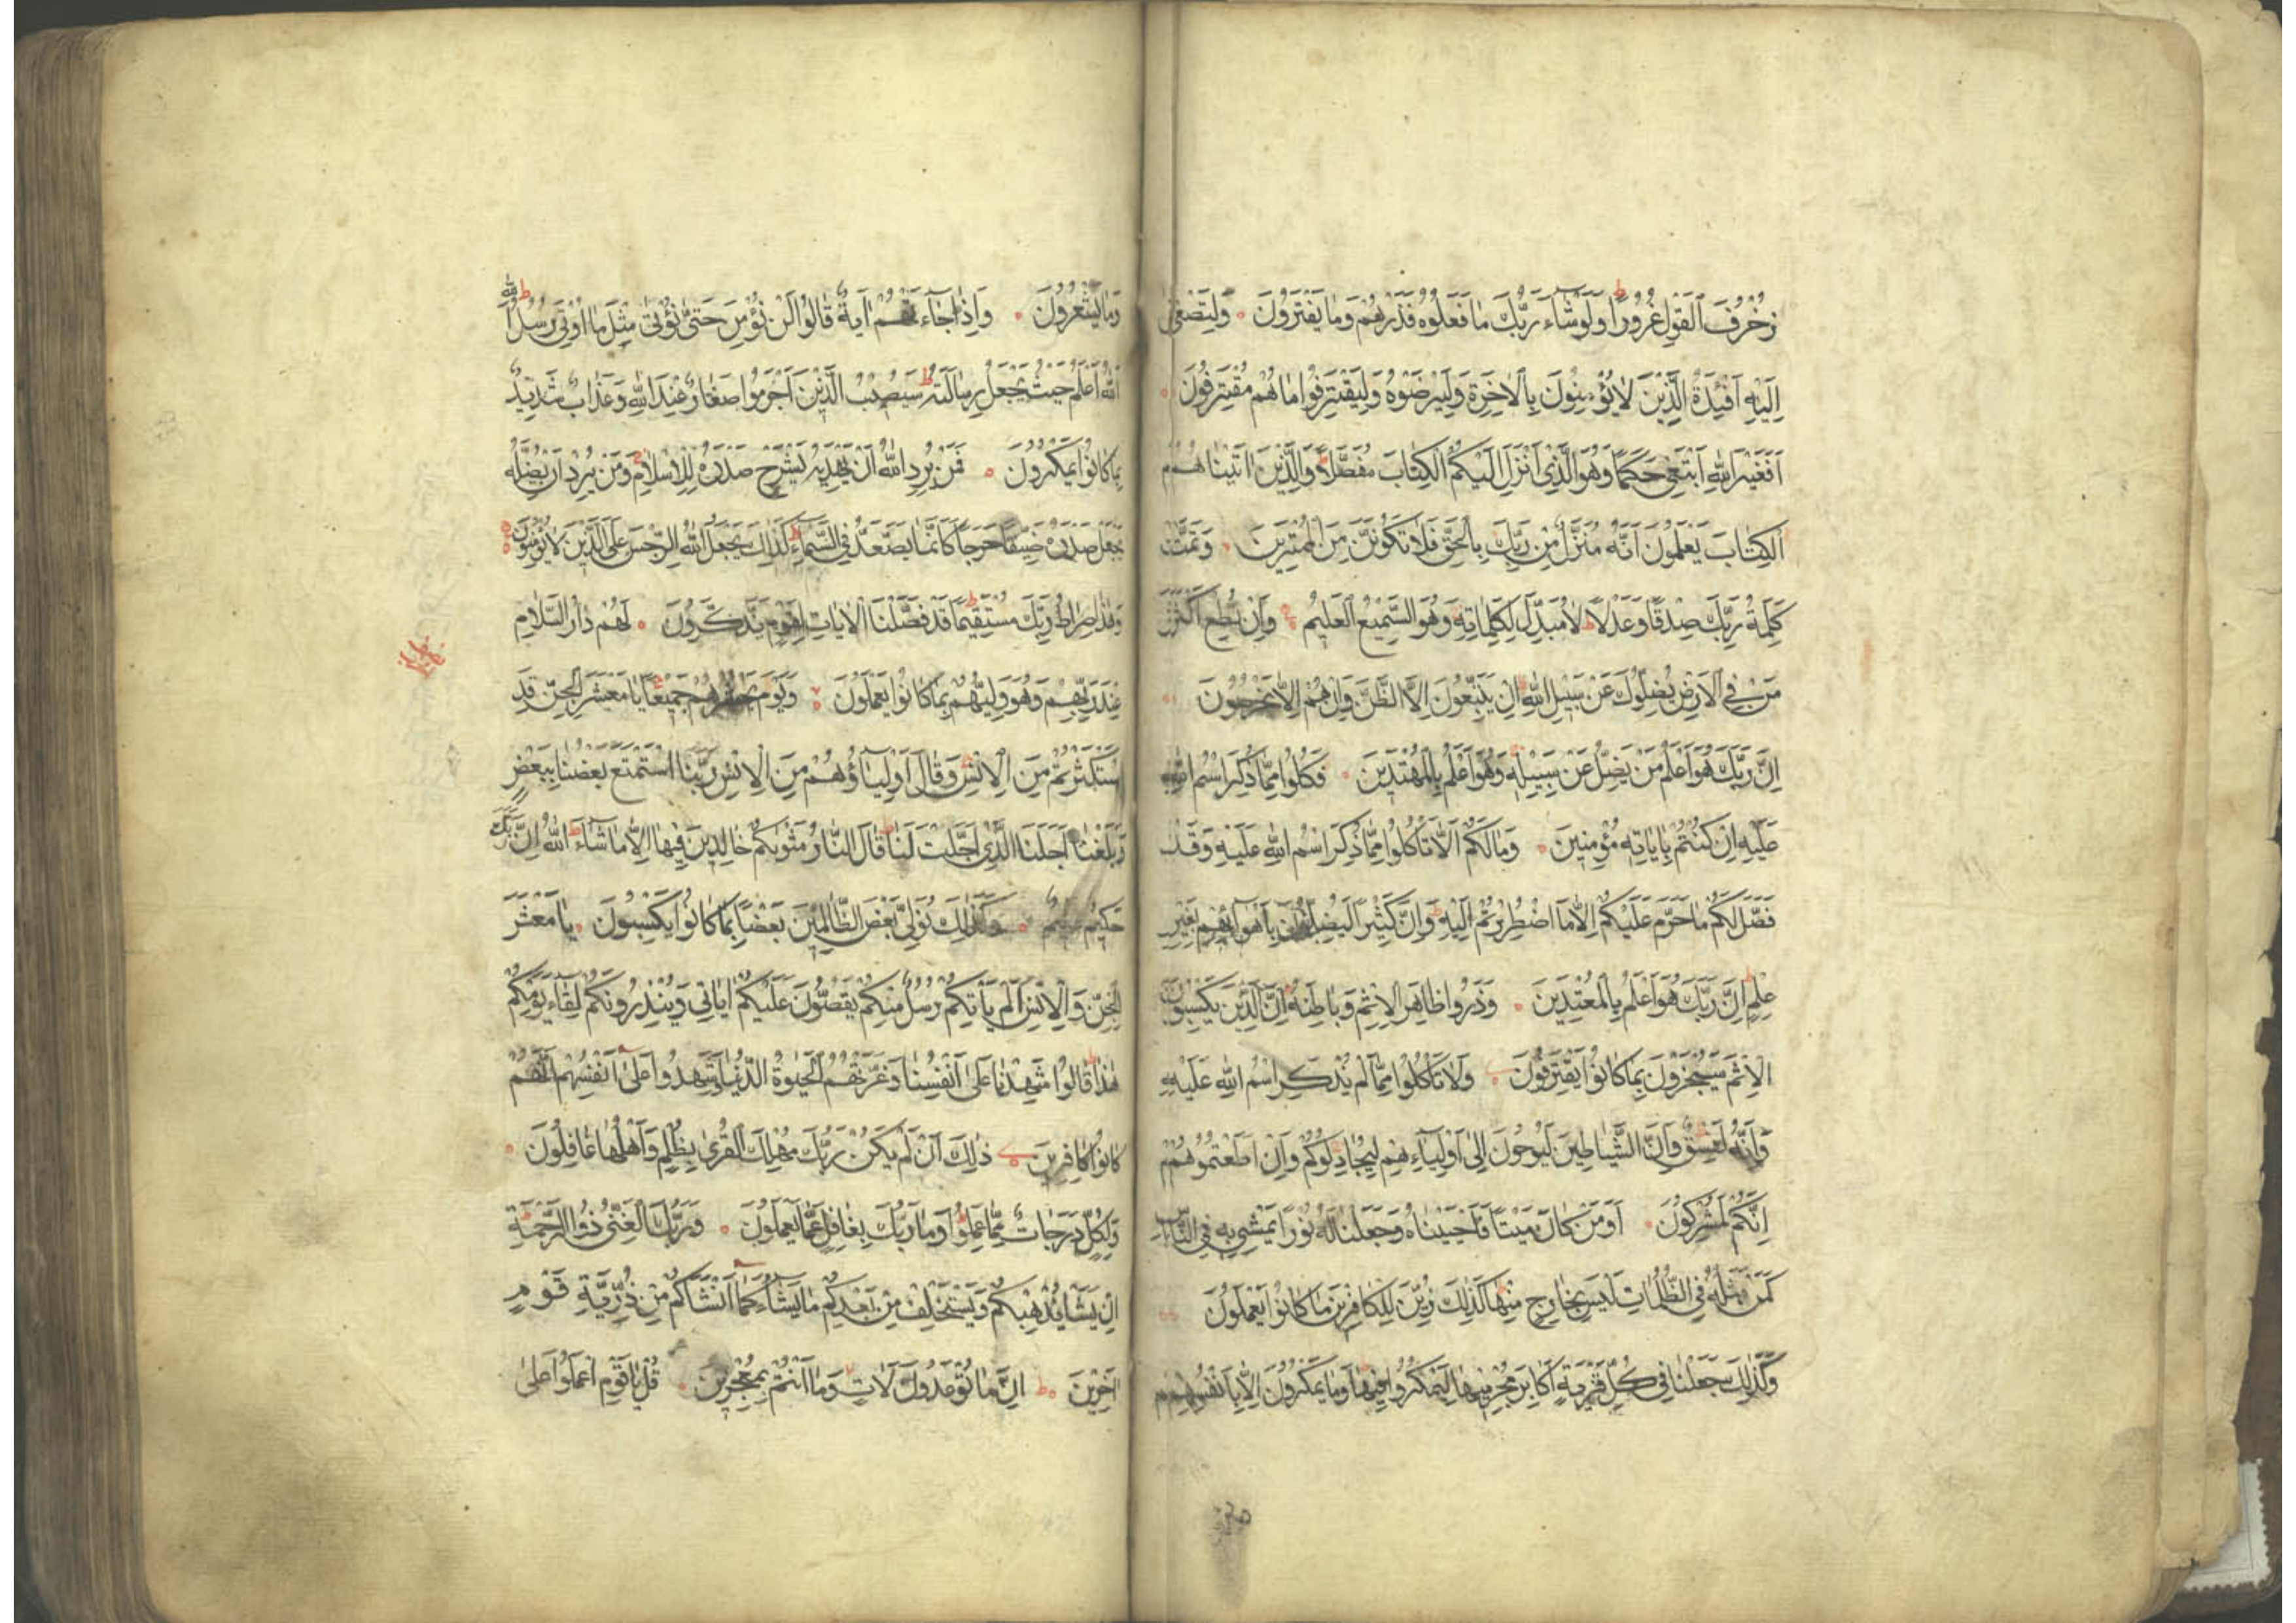 زُخْرُفَ الْقَوْلِ غُرُورًا وَلَوْ شَاءَ رَبُّكَ مَا فَعَلُوهُ فَذَرْهُمْ وَمَا يَفْتَرُونَ وَلِتَصْغٰى
اِلَيْهِ اَفْئِدَةُ الَّذِينَ لَا يُؤْمِنُونَ بِالْاٰخِرَةِ وَلِيَرْضَوْهُ وَلِيَقْتَرِفُوا مَا هُمْ مُقْتَرِفُونَ
اَفَغَيْرَ اللّٰهِ اَبْتَغِي حَكَمًا وَهُوَ الَّذِي اَنْزَلَ اِلَيْكُمُ الْكِتَابَ مُفَصَّلًا وَالَّذِينَ اٰتَيْنَاهُمُ
الْكِتَابَ يَعْلَمُونَ اَنَّهُ مُنَزَّلٌ مِنْ رَبِّكَ بِالْحَقِّ فَلَا تَكُونَنَّ مِنَ الْمُمْتَرِينَ وَتَمَّتْ
كَلِمَةُ رَبِّكَ صِدْقًا وَعَدْلًا لَا مُبَدِّلَ لِكَلِمَاتِهِ وَهُوَ السَّمِيعُ الْعَلِيمُ وَاِنْ تُطِعْ اَكْثَرَ
مَنْ فِي الْاَرْضِ يُضِلُّوكَ عَنْ سَبِيلِ اللّٰهِ اِنْ يَتَّبِعُونَ اِلَّا الظَّنَّ وَاِنْ هُمْ اِلَّا يَخْرُصُونَ
اِنَّ رَبَّكَ هُوَ اَعْلَمُ مَنْ يَضِلُّ عَنْ سَبِيلِهِ وَهُوَ اَعْلَمُ بِالْمُهْتَدِينَ فَكُلُوا مِمَّا ذُكِرَ اسْمُ اللّٰهِ
عَلَيْهِ اِنْ كُنْتُمْ بِاٰيَاتِهِ مُؤْمِنِينَ وَمَا لَكُمْ اَلَّا تَأْكُلُوا مِمَّا ذُكِرَ اسْمُ اللّٰهِ عَلَيْهِ وَقَدْ
فَصَّلَ لَكُمْ مَا حَرَّمَ عَلَيْكُمْ اِلَّا مَا اضْطُرِرْتُمْ اِلَيْهِ وَاِنَّ كَثِيرًا لَيُضِلُّونَ بِاَهْوَائِهِمْ بِغَيْرِ
عِلْمٍ اِنَّ رَبَّكَ هُوَ اَعْلَمُ بِالْمُعْتَدِينَ وَذَرُوا ظَاهِرَ الْاِثْمِ وَبَاطِنَهُ اِنَّ الَّذِينَ يَكْسِبُونَ
الْاِثْمَ سَيُجْزَوْنَ بِمَا كَانُوا يَقْتَرِفُونَ وَلَا تَأْكُلُوا مِمَّا لَمْ يُذْكَرِ اسْمُ اللّٰهِ عَلَيْهِ
وَاِنَّهُ لَفِسْقٌ وَاِنَّ الشَّيَاطِينَ لَيُوحُونَ اِلٰى اَوْلِيَاءِهِمْ لِيُجَادِلُوكُمْ وَاِنْ اَطَعْتُمُوهُمْ
اِنَّكُمْ لَمُشْرِكُونَ اَوَمَنْ كَانَ مَيْتًا فَاَحْيَيْنَاهُ وَجَعَلْنَا لَهُ نُورًا يَمْشِي بِهِ فِي النَّاسِ
كَمَنْ مَثَلُهُ فِي الظُّلُمَاتِ لَيْسَ بِخَارِجٍ مِنْهَا كَذٰلِكَ زُيِّنَ لِلْكَافِرِينَ مَا كَانُوا يَعْمَلُونَ
وَكَذٰلِكَ جَعَلْنَا فِي كُلِّ قَرْيَةٍ اَكَابِرَ مُجْرِمِيهَا لِيَمْكُرُوا فِيهَا وَمَا يَمْكُرُونَ اِلَّا بِاَنْفُسِهِمْ
وَمَا يَشْعُرُونَ وَاِذَا جَاءَتْهُمْ اٰيَةٌ قَالُوا لَنْ نُؤْمِنَ حَتّٰى نُؤْتٰى مِثْلَ مَا اُوتِيَ رُسُلُ اللّٰهِ
اَللّٰهُ اَعْلَمُ حَيْثُ يَجْعَلُ رِسَالَتَهُ سَيُصِيبُ الَّذِينَ اَجْرَمُوا صَغَارٌ عِنْدَ اللّٰهِ وَعَذَابٌ شَدِيدٌ
بِمَا كَانُوا يَمْكُرُونَ فَمَنْ يُرِدِ اللّٰهُ اَنْ يَهْدِيَهُ يَشْرَحْ صَدْرَهُ لِلْاِسْلَامِ وَمَنْ يُرِدْ اَنْ يُضِلَّهُ
يَجْعَلْ صَدْرَهُ ضَيِّقًا حَرَجًا كَاَنَّمَا يَصَّعَّدُ فِي السَّمَاءِ كَذٰلِكَ يَجْعَلُ اللّٰهُ الرِّجْسَ عَلَى الَّذِينَ لَا يُؤْمِنُونَ
وَهٰذَا صِرَاطُ رَبِّكَ مُسْتَقِيمًا قَدْ فَصَّلْنَا الْاٰيَاتِ لِقَوْمٍ يَذَّكَّرُونَ لَهُمْ دَارُ السَّلَامِ
عِنْدَ رَبِّهِمْ وَهُوَ وَلِيُّهُمْ بِمَا كَانُوا يَعْمَلُونَ وَيَوْمَ يَحْشُرُهُمْ جَمِيعًا يَا مَعْشَرَ الْجِنِّ قَدِ
اسْتَكْثَرْتُمْ مِنَ الْاِنْسِ وَقَالَ اَوْلِيَاؤُهُمْ مِنَ الْاِنْسِ رَبَّنَا اسْتَمْتَعَ بَعْضُنَا بِبَعْضٍ
وَبَلَغْنَا اَجَلَنَا الَّذِي اَجَّلْتَ لَنَا قَالَ النَّارُ مَثْوٰيكُمْ خَالِدِينَ فِيهَا اِلَّا مَا شَاءَ اللّٰهُ اِنَّ رَبَّكَ
حَكِيمٌ عَلِيمٌ وَكَذٰلِكَ نُوَلِّي بَعْضَ الظَّالِمِينَ بَعْضًا بِمَا كَانُوا يَكْسِبُونَ يَا مَعْشَرَ
الْجِنِّ وَالْاِنْسِ اَلَمْ يَأْتِكُمْ رُسُلٌ مِنْكُمْ يَقُصُّونَ عَلَيْكُمْ اٰيَاتِي وَيُنْذِرُونَكُمْ لِقَاءَ يَوْمِكُمْ
هٰذَا قَالُوا شَهِدْنَا عَلٰى اَنْفُسِنَا وَغَرَّتْهُمُ الْحَيٰوةُ الدُّنْيَا وَشَهِدُوا عَلٰى اَنْفُسِهِمْ اَنَّهُمْ
كَانُوا كَافِرِينَ ذٰلِكَ اَنْ لَمْ يَكُنْ رَبُّكَ مُهْلِكَ الْقُرٰى بِظُلْمٍ وَاَهْلُهَا غَافِلُونَ
وَلِكُلٍّ دَرَجَاتٌ مِمَّا عَمِلُوا وَمَا رَبُّكَ بِغَافِلٍ عَمَّا يَعْمَلُونَ وَرَبُّكَ الْغَنِيُّ ذُو الرَّحْمَةِ
اِنْ يَشَأْ يُذْهِبْكُمْ وَيَسْتَخْلِفْ مِنْ بَعْدِكُمْ مَا يَشَاءُ كَمَا اَنْشَاَكُمْ مِنْ ذُرِّيَّةِ قَوْمٍ
اٰخَرِينَ اِنَّ مَا تُوعَدُونَ لَاٰتٍ وَمَا اَنْتُمْ بِمُعْجِزِينَ قُلْ يَا قَوْمِ اعْمَلُوا عَلٰى